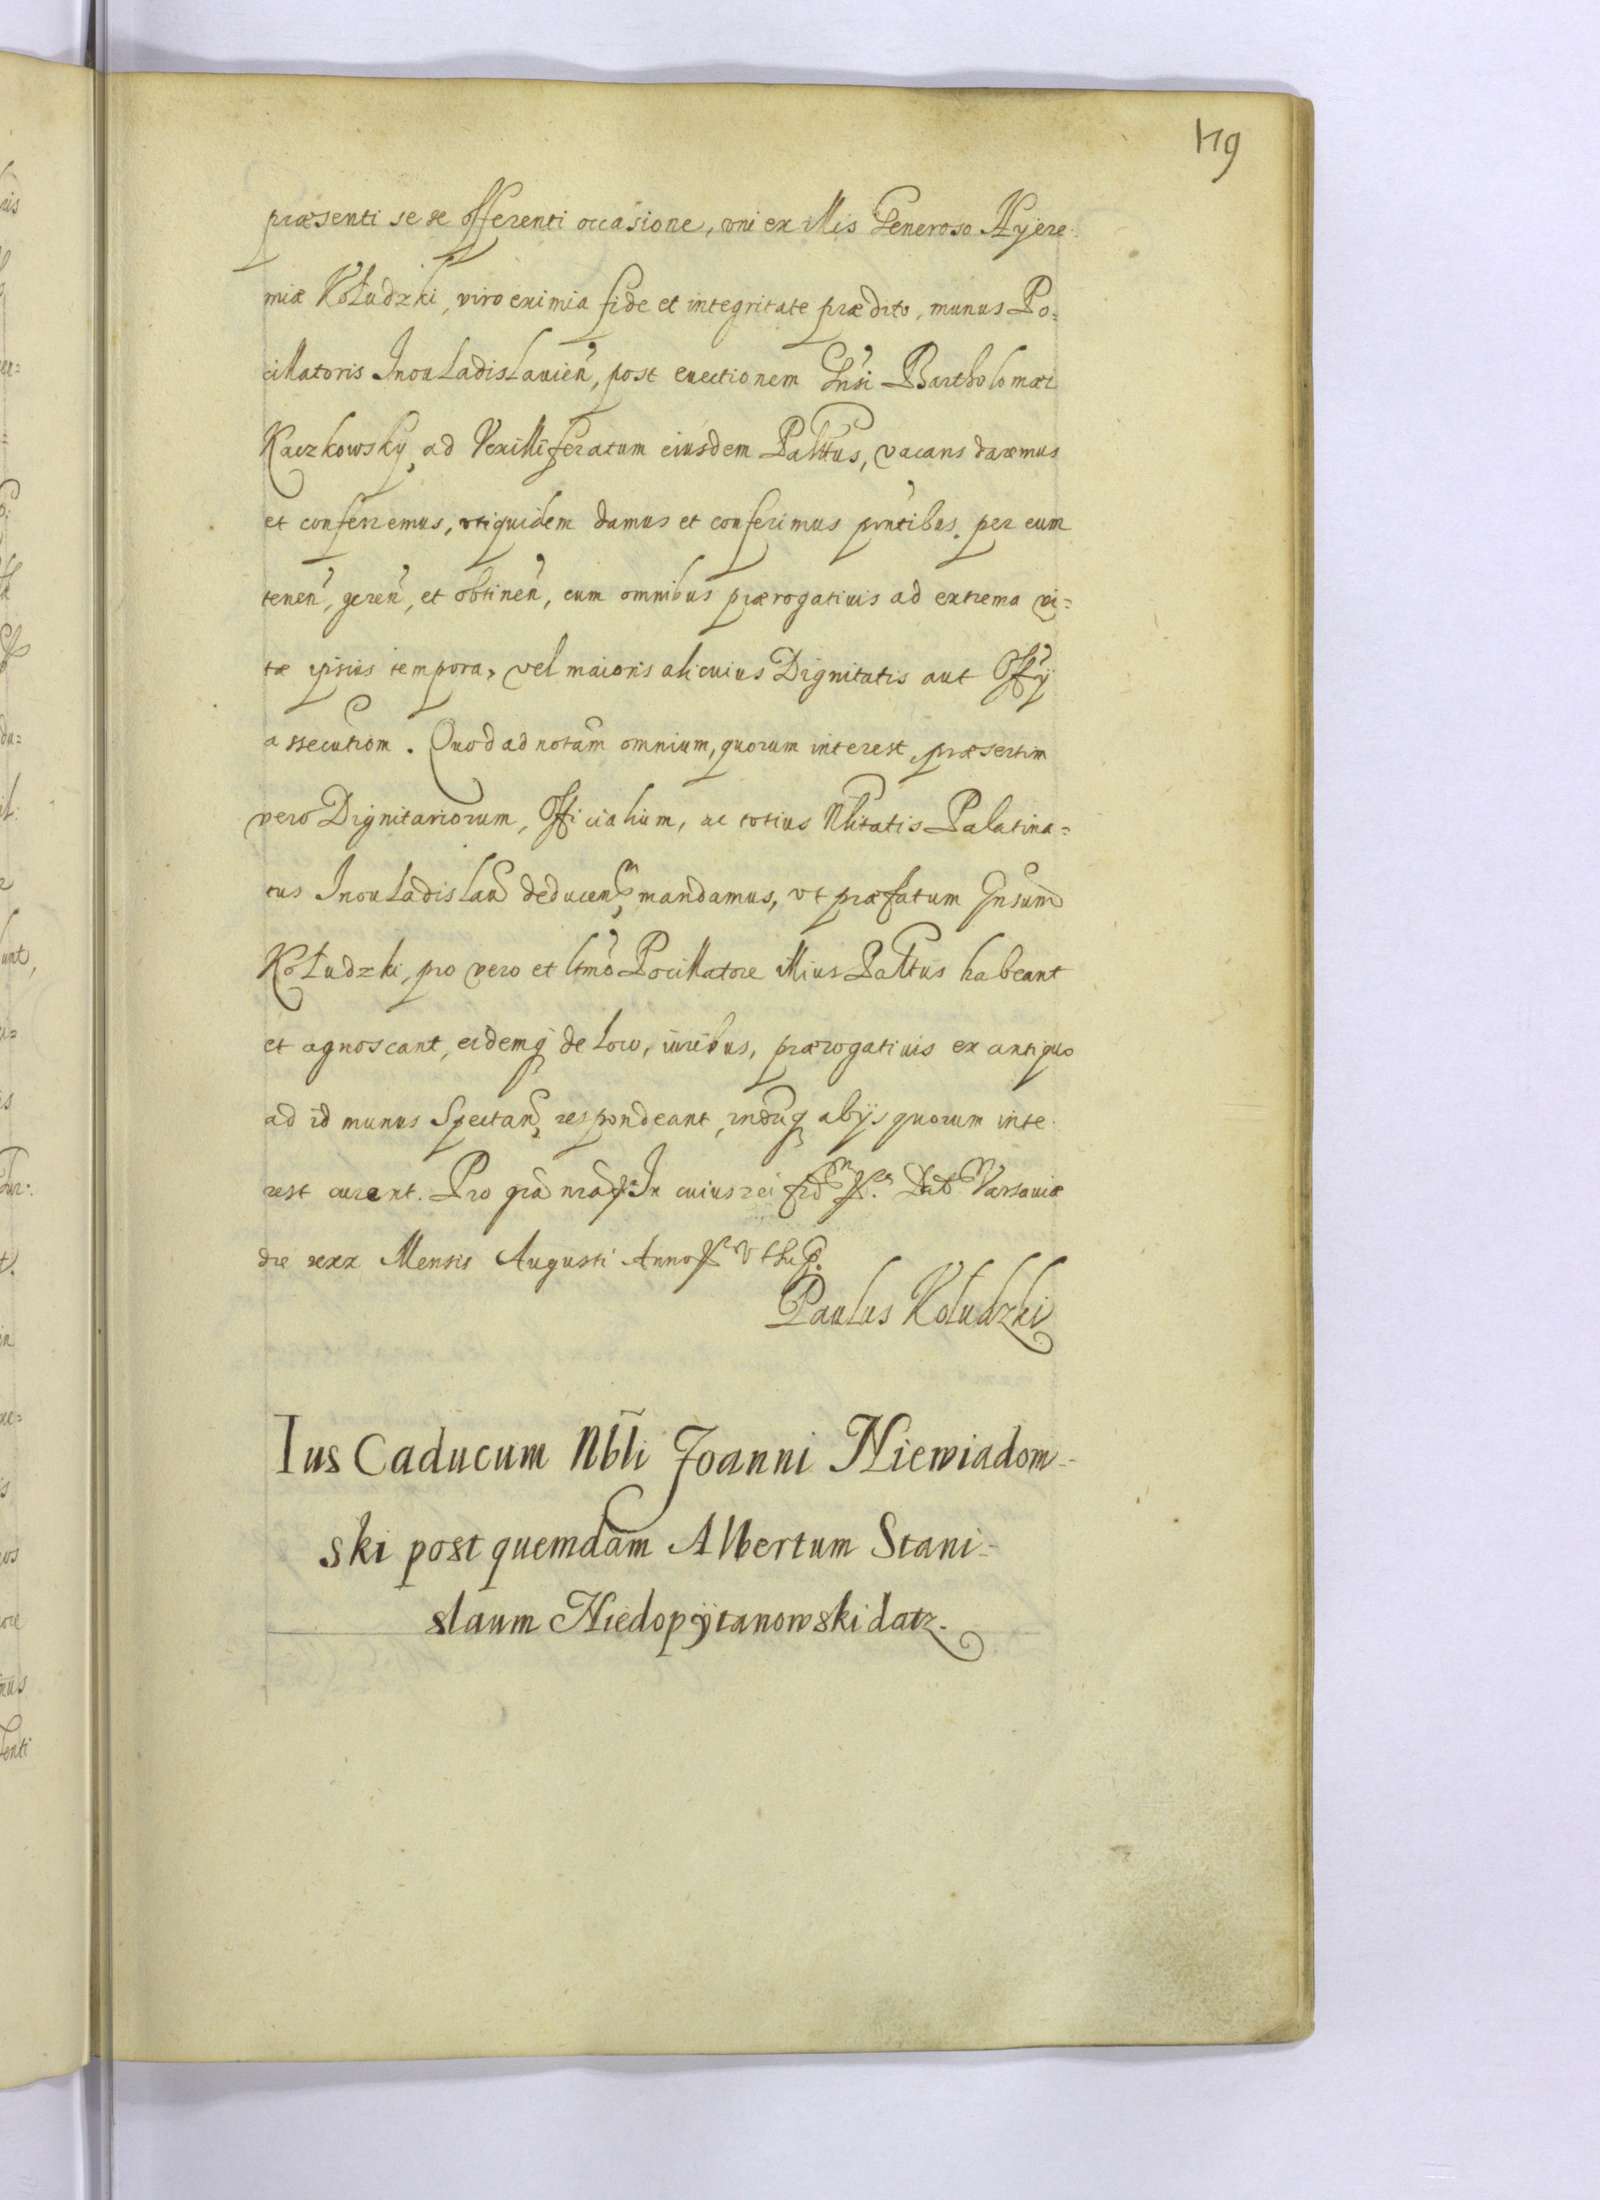 119
præsenti se se offerenti occasione, vni ex illis Generoso Hyere-
miæ Kołudzki, viro eximia fide et integritate prædito, munus Po-
cillatoris Inouladislauien, post euectionem Gnsi Bartholomæi
Kaczkowsky, ad Vexilliferatum eiusdem Palttus, vacans daremus
et conferremus, vti quidem damus et conferimus pntibus. per eum
tenen, geren, et obtinen, cum omnibus prærogatiuis ad extrema vi-
tæ ipsius tempora, vel maioris alicuius Dignitatis aut Offy
assecutiom. Quod ad notam omnium, quorum interest, præsertim
vero Dignitariorum, Officialium, ac totius Nblitatis Palatina-
tus Inouladislau deducen, mandamus, vt præfatum Gnsum
Kołudzki, pro vero et ltmo Pocillatore illius Palttus habeant
et agnoscant, eidemq de loco, iuribus, prærogatiuis ex antiquo
ad id munus Spectan, respondeant, q abijs quorum inte-
rest curent. Pro gra nra In cuius rei fid Dat Varsauiæ
die xxx Mensis Augusti Anno
Paulus Kołudzki
Ius Caducum Nbli Joanni Niewiadom-
ski post quemdam Albertum Stani-
slaum Niedopÿtanowski datr.